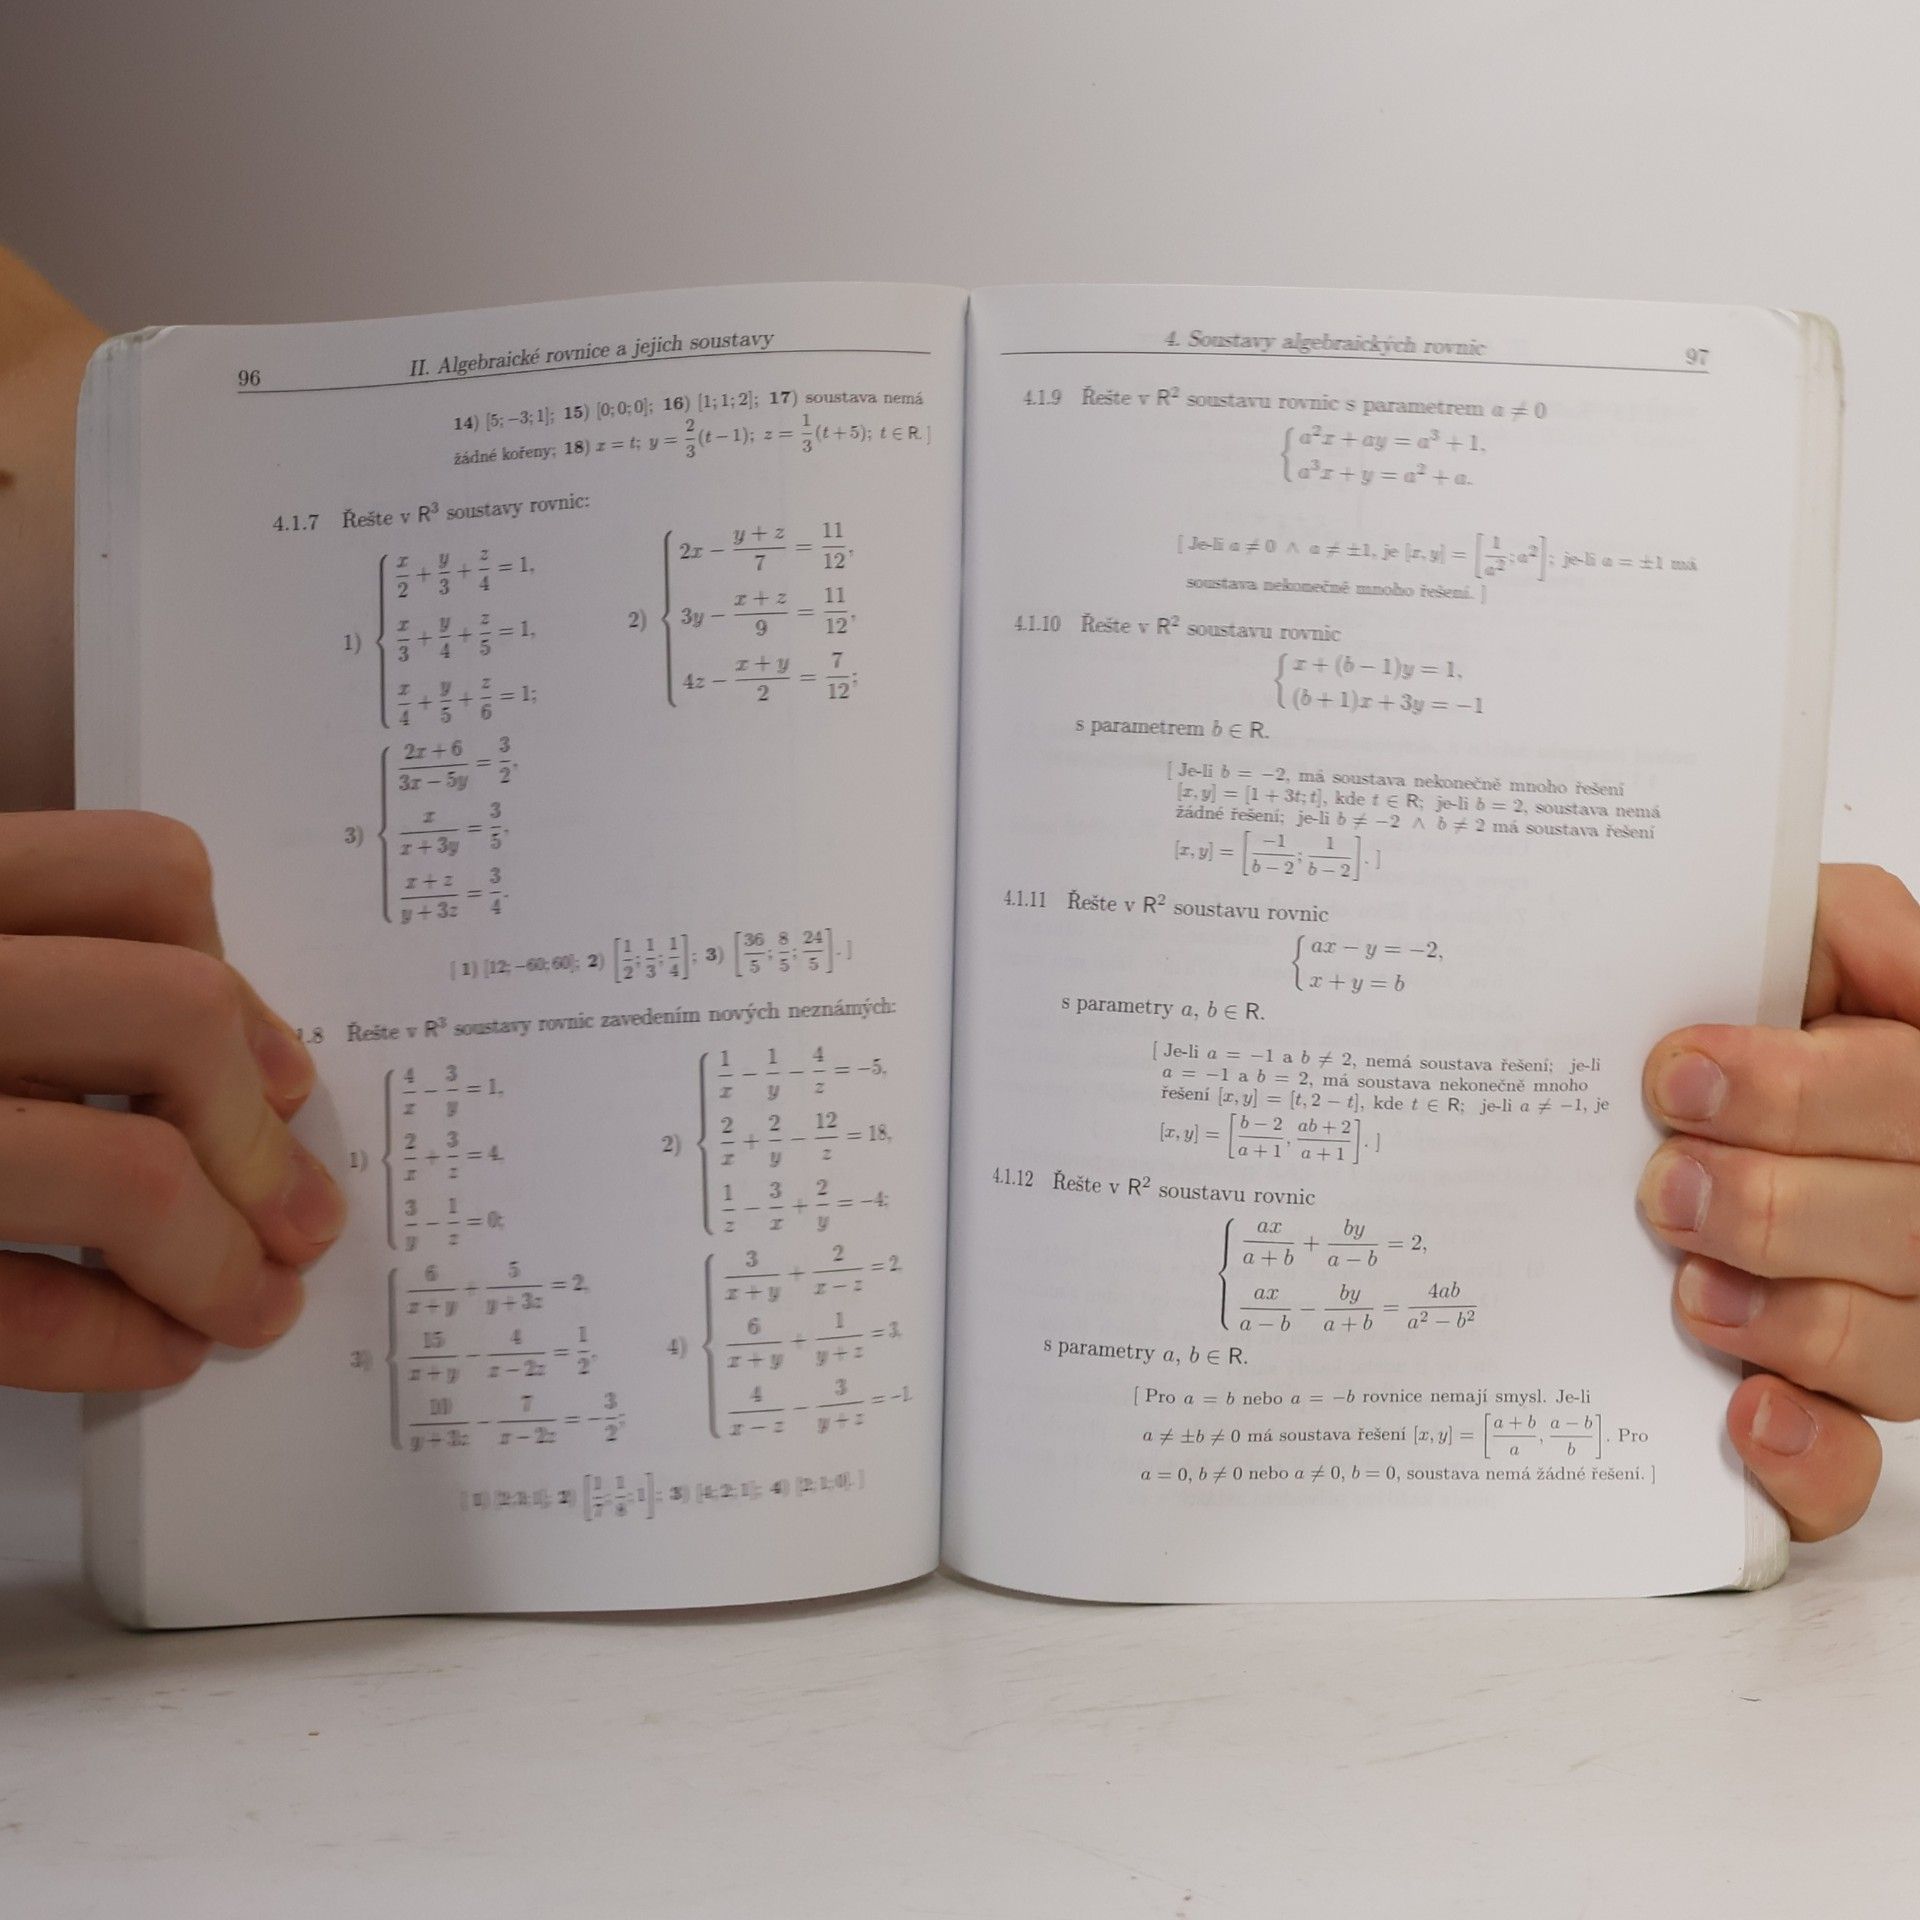 96 II. Algebraické rovnice a jejich soustavy
14) [5; −3; 1]; 15) [0; 0; 0]; 16) [1; 1; 2]; 17) soustava nemá
žádné kořeny; 18) x = t; y = 2/3 (t − 1); z = 1/3 (t + 5); t ∈ R ]
4.1.7 Řešte v R³ soustavy rovnic:
1) { x/2 + y/3 + z/4 = 1,
x/3 + y/4 + z/5 = 1,
x/4 + y/5 + z/6 = 1;
2) { 2x − (y + z)/7 = 11/12,
3y − (x + z)/9 = 11/12,
4z − (x + y)/2 = 7/12;
3) { (2x + 6)/(3x − 5y) = 3/2,
x/(x + 3y) = 3/5,
(x + z)/(y + 3z) = 3/4.
[ 1) [12; −60; 60]; 2) [1/2; 1/3; 1/4]; 3) [36/5; 8/5; 24/5]. ]
.8 Řešte v R³ soustavy rovnic zavedením nových neznámých:
1) { 4/x − 3/y = 1,
2/x + 3/z = 4,
3/y − 1/z = 0;
2) { 1/x − 1/y − 4/z = −5,
2/x + 2/y − 12/z = 18,
1/z − 3/x + 2/y = −4;
3) { 6/(x + y) + 5/(y + 3z) = 2,
15/(x + y) − 4/(x − 2z) = 1/2,
10/(y + 3z) − 7/(x − 2z) = −3/2;
4) { 3/(x + y) + 2/(x − z) = 2,
6/(x + y) + 1/(y + z) = 3,
4/(x − z) − 3/(y + z) = −1.
3) [4; 2; 1]; 4) [2; 1; 0]. ]
4. Soustavy algebraických rovnic 97
4.1.9 Řešte v R² soustavu rovnic s parametrem a ≠ 0
{ a²x + ay = a³ + 1,
a³x + y = a² + a.
[ Je-li a ≠ 0 ∧ a ≠ ±1, je [x, y] = [1/a²; a²]; je-li a = ±1 má
soustava nekonečně mnoho řešení. ]
4.1.10 Řešte v R² soustavu rovnic
{ x + (b − 1)y = 1,
(b + 1)x + 3y = −1
s parametrem b ∈ R.
[ Je-li b = −2, má soustava nekonečně mnoho řešení
[x, y] = [1 + 3t; t], kde t ∈ R; je-li b = 2, soustava nemá
žádné řešení; je-li b ≠ −2 ∧ b ≠ 2 má soustava řešení
[x, y] = [−1/(b − 2); 1/(b − 2)]. ]
4.1.11 Řešte v R² soustavu rovnic
{ ax − y = −2,
x + y = b
s parametry a, b ∈ R.
[ Je-li a = −1 a b ≠ 2, nemá soustava řešení; je-li
a = −1 a b = 2, má soustava nekonečně mnoho
řešení [x, y] = [t, 2 − t], kde t ∈ R; je-li a ≠ −1, je
[x, y] = [(b − 2)/(a + 1), (ab + 2)/(a + 1)]. ]
4.1.12 Řešte v R² soustavu rovnic
{ ax/(a + b) + by/(a − b) = 2,
ax/(a − b) − by/(a + b) = 4ab/(a² − b²)
s parametry a, b ∈ R.
[ Pro a = b nebo a = −b rovnice nemají smysl. Je-li
a ≠ ±b ≠ 0 má soustava řešení [x, y] = [(a + b)/a, (a − b)/b]. Pro
a = 0, b ≠ 0 nebo a ≠ 0, b = 0, soustava nemá žádné řešení. ]